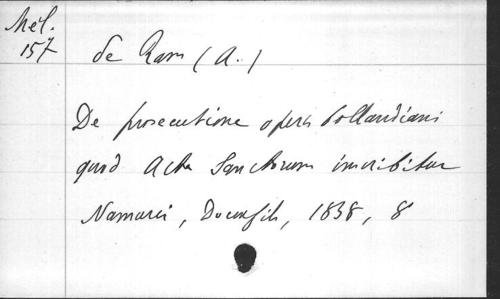 Mél.
157
de Ram (A.)
De prosecutione operis bollandiani
quod Acta Sanctorum inscribitur
Namurci, Douxfils, 1838, 8